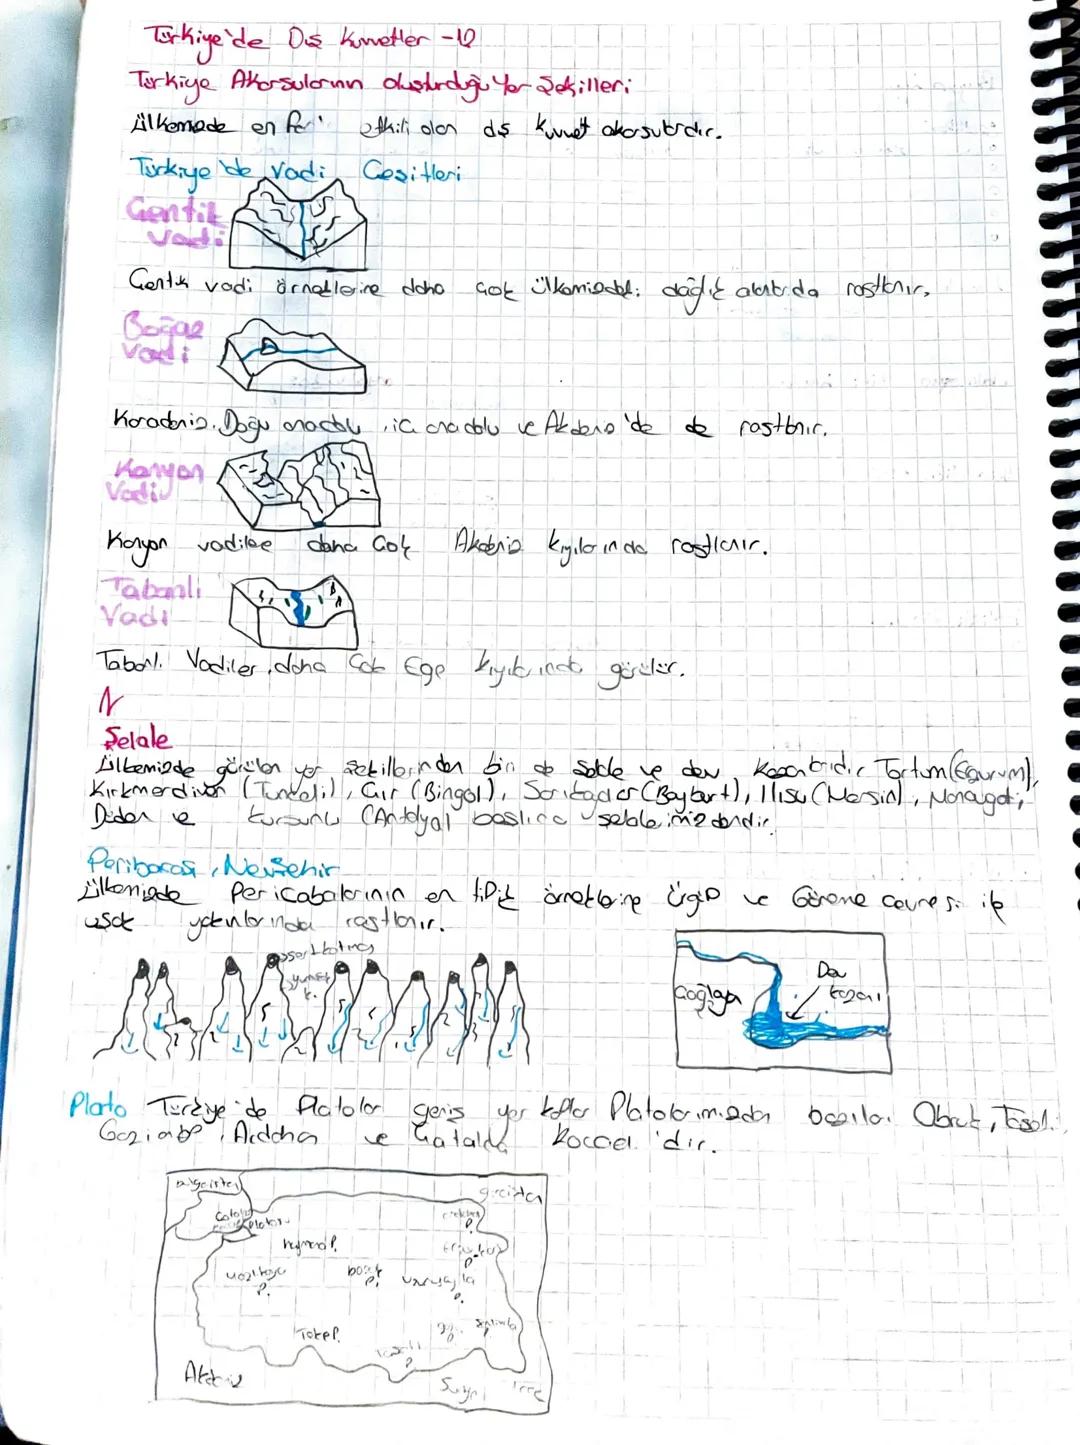 Türkiye'de Dış Kuvvetler -12
Türkiye Akarsularının oluşturduğu Yer Şekilleri
Ülkemizde en etkili olan dış kuvvet akarsulardır.
Türkiye'de Vadi Çeşitleri
Çentik
Vadi
Çentik vadi örneklerine daha çok ülkemizdeki dağlık alanlarda rastlanır.
Boğaz
Vadi
Karadeniz, Doğu anadolu, iç anadolu ve Akdeniz'de de rastlanır.
Kanyon
Vadi
Kanyon vadilee daha çok Akdeniz kıyılarında rastlanır.
Tabanlı
Vadi
Tabanlı Vadiler daha çok Ege kıyılarında görülür.
N
Şelale
Ülkemizde görülen yer şekillerinden biri de Şelale ve dev kazanlarıdır Tortum (Erzurum),
Kırkmerdiven (Tunceli), Çır (Bingöl), (Bayburt), Ilısu (Mersin), Manavgat,
Düden ve kurşunlu (Antalya) başlıca şelalelerimizdendir
Peribacası, Nevşehir
Ülkemizde Pericabalarının en tipik örneklerine ürgüp ve Göreme çevresi ile
uşak yakınlarında rastlanır.
Çağlayan
Dev
kazanı
Plato Türkiye'de Platolar geniş yer kaplar Platolarımızdan bazıları Obruk, Taşeli,
Gaziantep, Ardahan ve Çatalca Kocaeli'dir.
Akdeniz